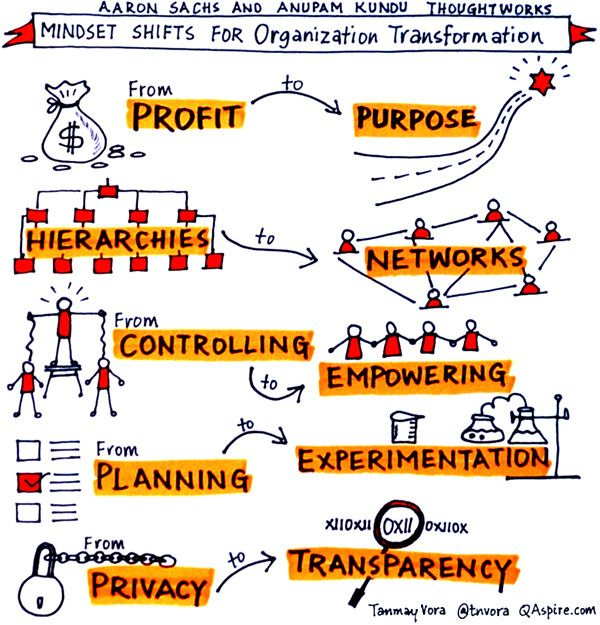 AARON SACHS AND ANUPAM KUNDU THOUGHTWORKS
MINDSET SHIFTS FOR Organization Transformation
From
PROFIT
to
PURPOSE
$
HIERARCHIES
to
NETWORKS
From
CONTROLLING
to
EMPOWERING
From
PLANNING
to
EXPERIMENTATION
From
PRIVACY
to
TRANSPARENCY
X110X11 0X11 0X110X
Tanmay Vora @tnvora QAspire.com